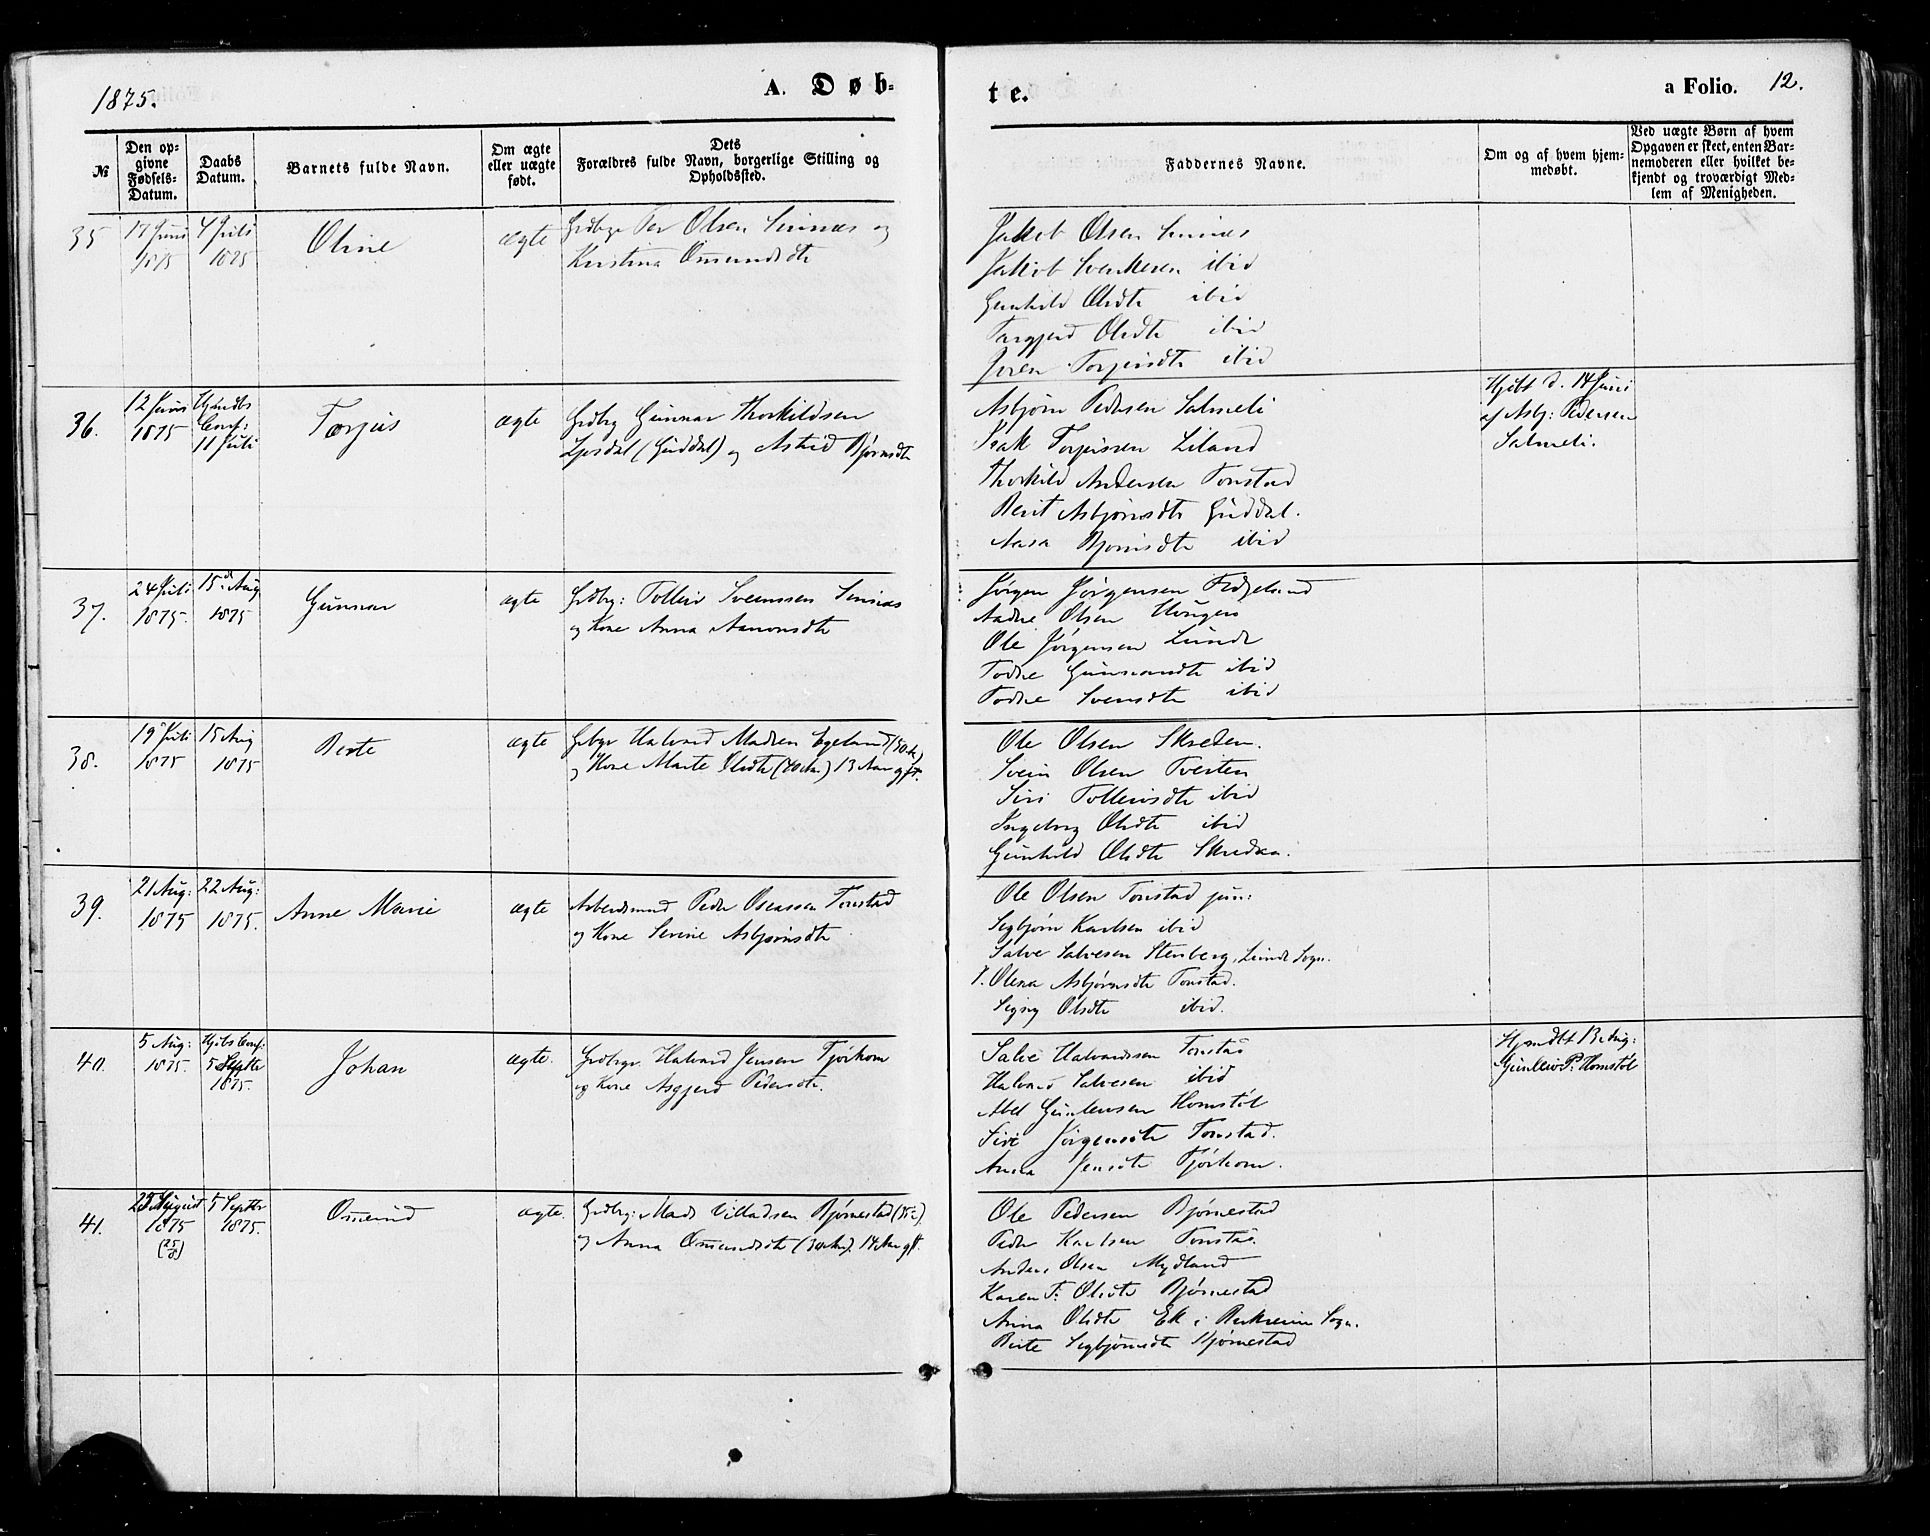 1875.
A. Døb-
te.
a Folio. 12.
№
Den op-
givne
Fødsels-
Datum.
Daabs
Datum.
Barnets fulde Navn.
Om ægte
eller uægte
født.
Dets
Forældres fulde Navn, borgerlige Stilling og
Opholdssted.
Faddernes Navne.
Om og af hvem hjem-
medøbt.
Ved uægte Børn af hvem
Opgaven er skeet, enten Bar-
nemoderen eller hvilket be-
kjendt og troværdigt Med-
lem af Menigheden.
35
17 Juni
1875
4 Juli
1875
Oline
ægte
Grdbgr Per Olsen Sinnes og
Kristina Omundsdtr
Jakob Olsen Sinnes
Jakob Svenkesen ibid
Gunhild Olsdtr ibid
Torgjerd Olsdtr ibid
Joren Torjusdtr ibid
36.
12 Juni
1875
Hjmdbs
Conf:
11 Juli
Torjus
ægte
Grdbrg Gunnar Thorkildsen
Josdal (Guddal) og Astrid Bjørnsdtr
Asbjørn Pedersen Salmeli
Isak Torjussen Liland
Thorkild Andersen Tonstad
Berit Asbjørnsdtr Guddal.
Aasa Bjørnsdtr ibid
Hjdbt d. 14 Juni
af Asbj: Pedersen
Salmeli.
37.
24 Juli
1875.
15 d. Aug
1875
Gunnar
ægte
Grdbrg: Tolleiv Svenssen Sinnes
og Kone Anna Aanonsdtr
Jørgen Jørgensen Fidjeland
Aadne Olsen Hougen
Ole Jørgensen Lunde
Todne Gunnarsdtr ibid
Todne Svensdtr ibid
38.
19 Juli
1875
15 Aug
1875
Berte
ægte
Gbgr Halvard Madsen Egeland (50 A.)
og Kone Marte Olsdtr (40 Aar.) 13 Aar gft.
Ole Olsen Skreden.
Svein Olsen Tveiten
Siri Tolleivsdtr ibid
Ingeborg Olsdtr ibid
Gunhild Olsdtr Skreden.
39.
21 Aug:
1875
22 Aug:
1875.
Anne Marie
ægte
Arbeidsmand Peder Oseassen Tonstad
og Kone Serine Asbjørnsdtr
Ole Olsen Tonstad jun:
Segbjørn Karlsen ibid
Salve Salvesen Stenberg, Lunde Sogn.
Olena Asbjørnsdtr Tonstad.
Signy Olsdtr ibid.
40.
5 Aug:
1875.
Hjdbs Conf:
5 Septbr
1875.
Johan
ægte.
Grdbrgr Halvard Jensen Tjørhom
og Kone Asgjerd Pedersdtr.
Salve Halvardssen Tonstad
Halvard Salvesen ibid
Abel Gunleivsen Homstøl
Siri Jørgensdtr Tonstad.
Anna Jensdtr Tjørhom.
Hjmdbt 13 Aug:
Gunleiv P: Homstøl
41.
25 August
1875
(25/8)
5 Septbr
1875.
Omund
ægte.
Grdbrg: Mads Villadsen Bjørnestad (35 A.)
og Anna Omundsdtr (30 Aar). 14 Aar gft.
Ole Pedersen Bjørnestad
Peder Karlsen Tonstad.
Anders Olsen Mydland
Karen T: Olsdtr Bjørnestad
Anna Olsdtr Eik i Birkreim Sogn.
Berte Segbjørnsdtr Bjørnestad